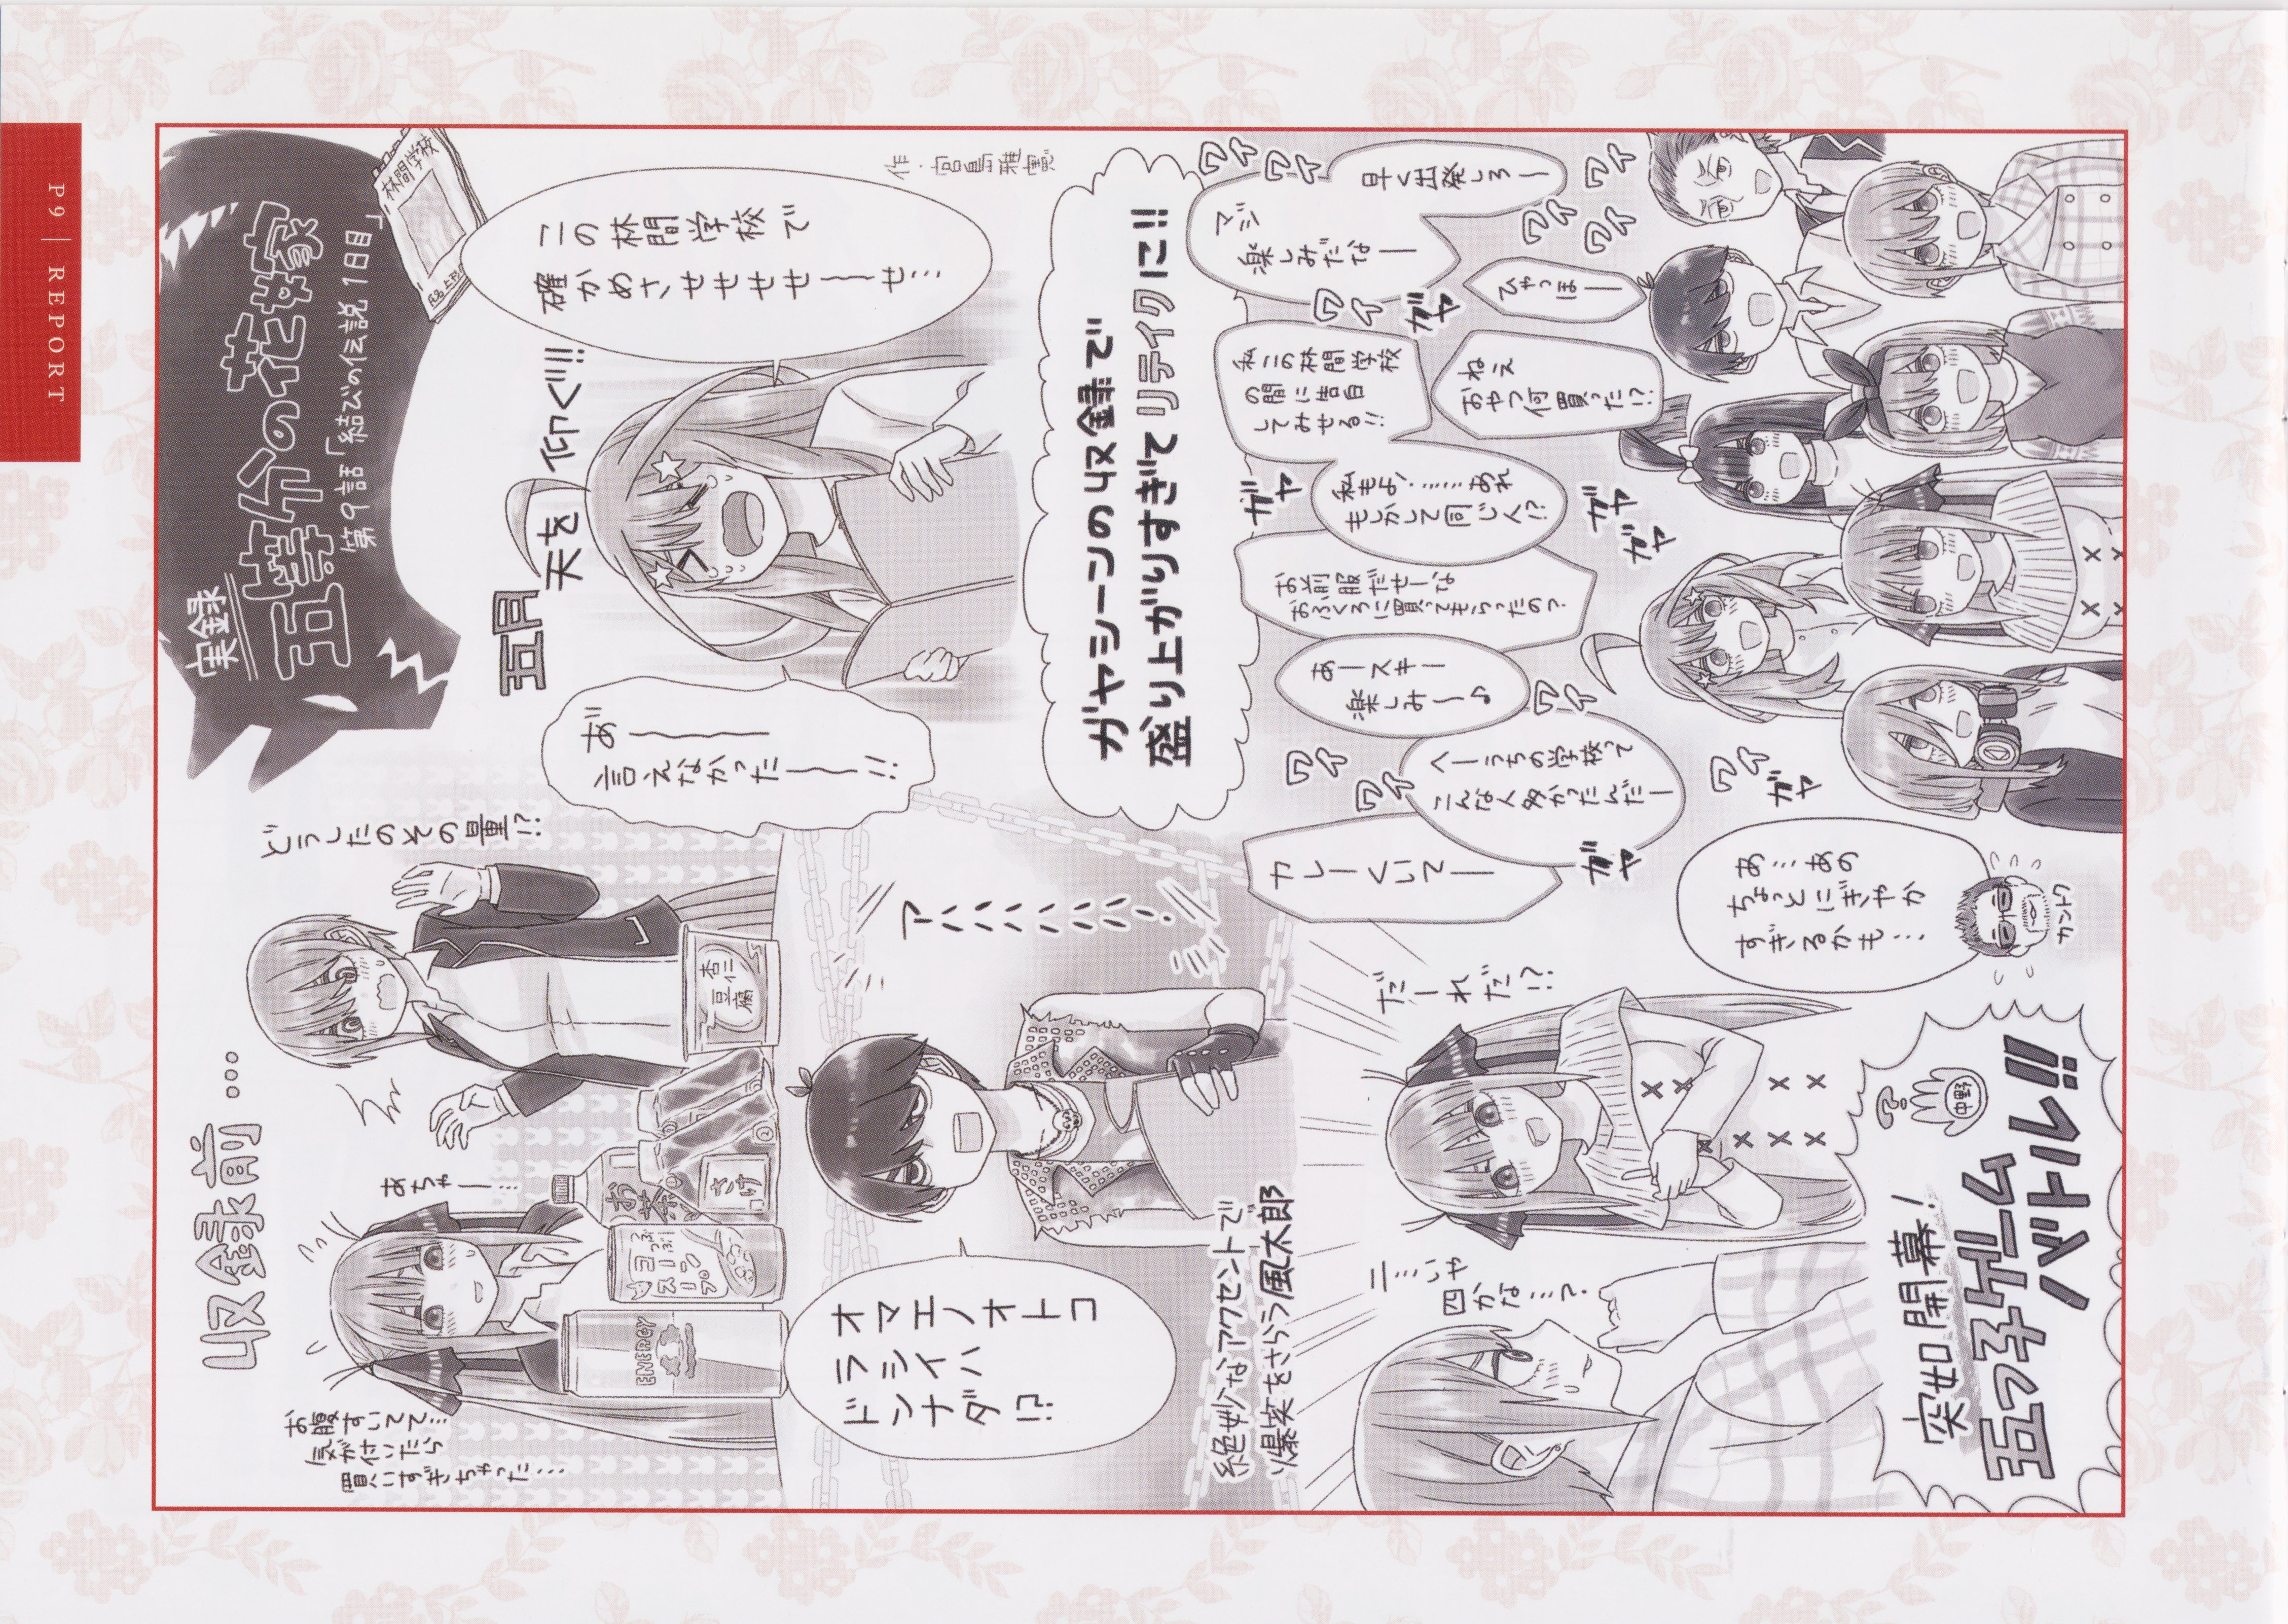 P9 | REPORT
実録
五等分の花嫁
第9話「結びの伝説1日目」
林間学校
作・宮島雅憲
この林間学校で
確かめさせせせせ〜〜せ…
五月
天を仰ぐ!!!
あ゛〜〜〜
言えなかった〜〜!!
収録前…
どうしたのその量!?
杏仁
豆腐
あちゃー…
お茶
さけ
コーン
つぶつぶ
スープ
ENERGY
お腹すいてて…
気が付いたら
買いすぎちゃった…
ガヤシーンの収録で
盛り上がりすぎてリテイクに!!
ワイ
ワイ
早く出発しろー
マジ
楽しみだなー
ワイ
ワイ
ワイ
ひゃっほー
ワイ
ガヤ
私この林間学校
の間に告白
してみせる!!
ねえ
おやつ何買った!?
ガヤ
私もよ!……あれ
もしかして同じ人!?
ガヤ
ガヤ
お前服だせーな
おふくろに買ってもらったの?
あースキー
楽しみー♪
ワイ
ワイ
ワイ
へーうちの学校って
こんな人多かったんだー
ワイ
ガヤ
カレーくいてー
ガヤ
あ…あの
ちょっとにぎやか
すぎるかも…
カントク
アハハハハハハ!
オマエノオトコ
ラシイハ
ドンナダ!?
絶妙なアクセントで
爆笑をさらう風太郎
だーれだ!?
二…いや
四かな…?
中野
?
突如開幕!
五つ子ゲーム
バトル!!